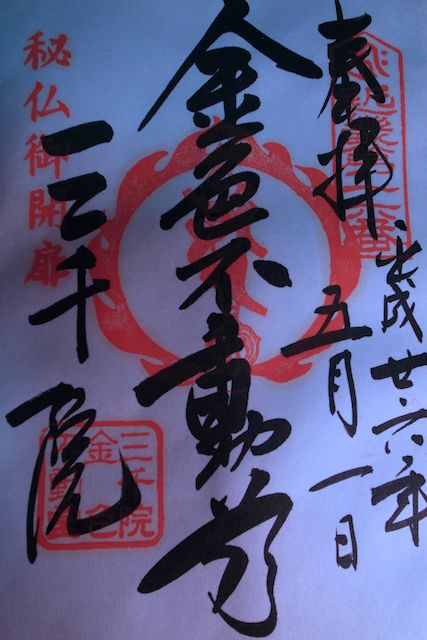 奉拝
平成廿六年
五月一日
金色不動尊
秘仏御開扉
三千院
三千院
金色